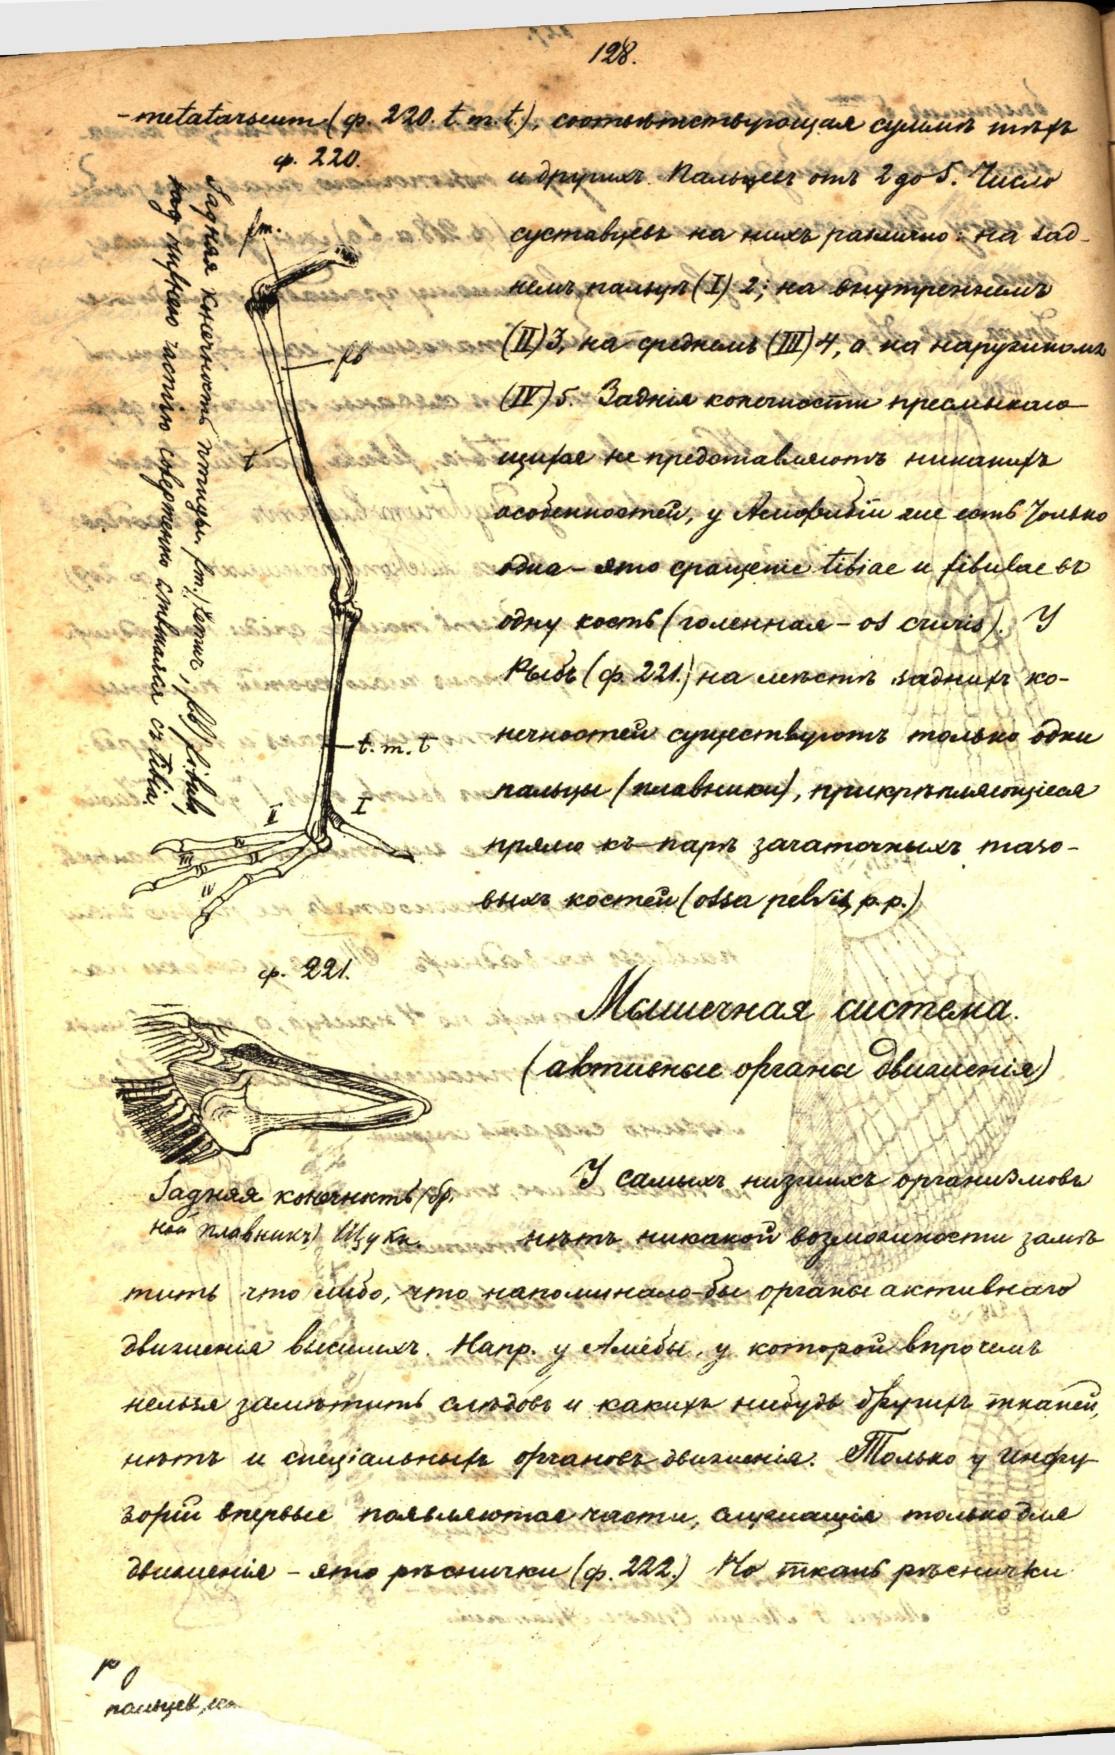 128.
-metatarseum (ф. 220. t. m. t.), соотвѣтствующая суммѣ тѣхъ
ф. 220.
и другихъ. Пальцевъ отъ 2 до 5. Число
суставовъ на нихъ различно: на зад-
немъ пальцѣ (I) 2; на внутреннемъ
(II) 3, на среднемъ (III) 4, а на наружномъ
(IV) 5. Заднія конечности пресмыкаю-
щихся не представляютъ никакихъ
особенностей, у Амфибій же есть только
одна – это сращеніе tibiae и fibulae въ
одну кость (голенная – os cruris). У
Рыбъ (ф. 221.) на мѣстѣ заднихъ ко-
нечностей существуютъ только одни
пальцы (плавники), прикрѣпляющіеся
прямо къ парѣ зачаточныхъ тазо-
выхъ костей (ossa pelvis, p.p.)
Задняя конечность птицы. fm.) Femur, fb) fibula,
частію совершенно слившаяся съ tibia,
fm.
fb
t
t. m. t
I
I
III
II
ф. 221.
Задняя конечность (бр.
ной плавникъ) Щуки.
Мышечная система.
(активные органы движенія)
У самыхъ низшихъ организмовъ
нѣтъ никакой возможности замѣ
тить что либо, что напоминало-бы органы активнаго
движенія высшихъ. Напр. у Амебы, у которой впрочемъ
нельзя замѣтить слѣдовъ и какихъ нибудь другихъ тканей,
нѣтъ и спеціальныхъ органовъ движенія. Только у инфу-
зорій впервые появляются части, служащія только для
движенія – это рѣснички (ф. 222.) Но ткань рѣснички
пальцев,